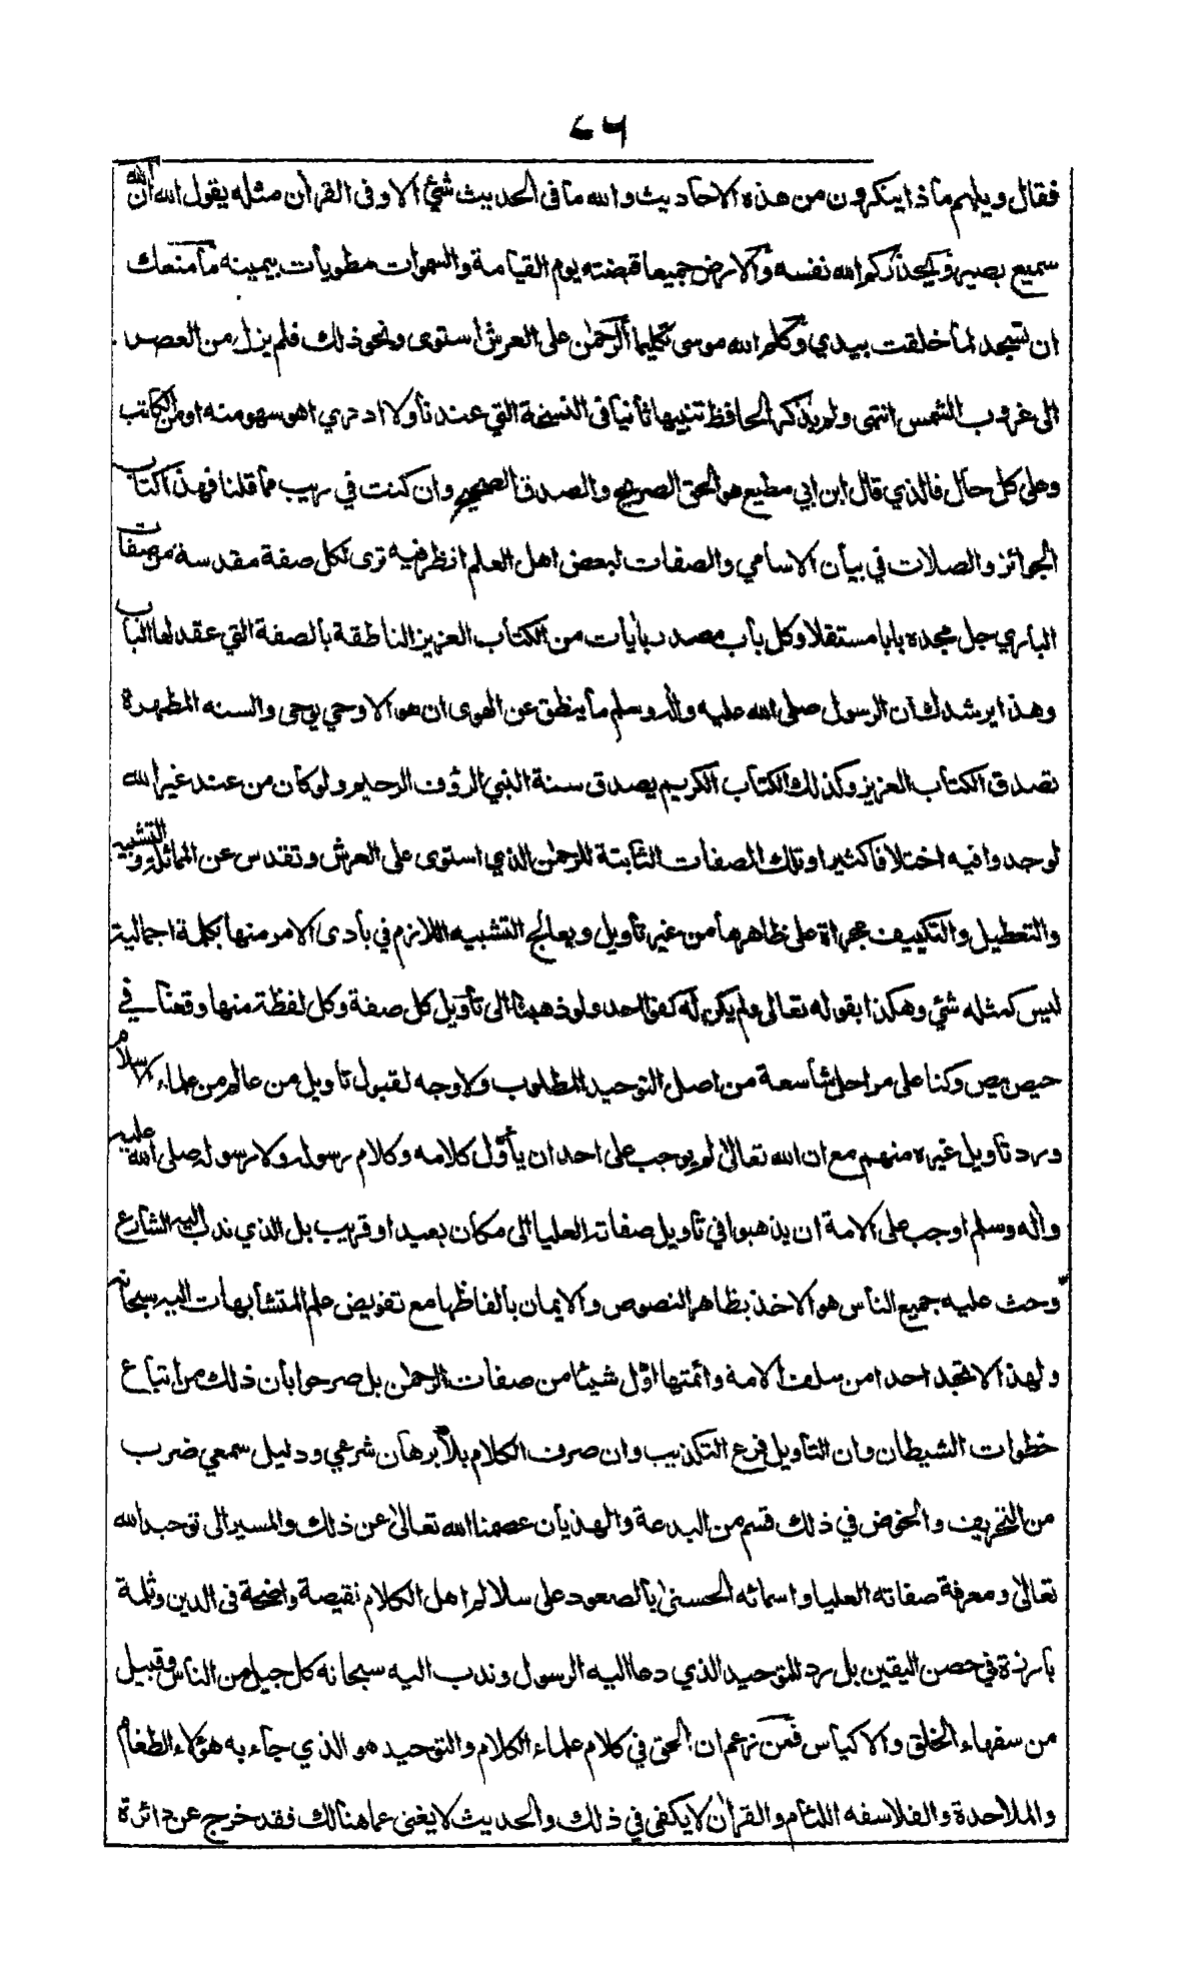 ٤٦
فقال ويلهم ماذا ينكرون من هذه الاحاديث والله ما في الحديث شئ الا وفى القرأن مثله يقول الله ان الله
سميع بصير ويحذركم الله نفسه والارض جميعا قبضته يوم القيامة والسموات مطويات بيمينه ما منعك
ان تسجد لما خلقت بيدي وكلم الله موسى تكليما الرحمن على العرش استوى ونحو ذلك فلم يزل من العصر
الى غروب الشمس انتهى ولم يذكر الحافظ تنبيها ثانيا فى النسخة التي عندنا ولا ادري اهو سهو منه او من الكاتب
وعلى كل حال فالذي قال ابن ابي مطيع هو الحق الصريح والصدق الصحيح وان كنت في ريب مما قلنا فهذا كتاب
الجوائز والصلات في بيان الاسامي والصفات لبعض اهل العلم انظر فيه ترى لكل صفة مقدسة من صفات
الباري جل مجده بابا مستقلا وكل باب مصدر بأيات من الكتاب العزيز الناطقة بالصفة التي عقد لها الباب
وهذا يرشدك ان الرسول صلى الله عليه واله وسلم ما ينطق عن الهوى ان هو الا وحي يوحى والسنه المطهرة
تصدق الكتاب العزيز وكذلك الكتاب الكريم يصدق سنة النبي الرؤف الرحيم ولو كان من عند غير الله
لوجدوا فيه اختلافا كثيرا وتلك الصفات الثابتة للرحمن الذي استوى على العرش وتقدس عن المماثلة والتشبيه
والتعطيل والتكييف مجراة على ظاهرها من غير تأويل ويعالج التشبيه اللازم في بادى الامر منها بكلمة اجمالية
ليس كمثله شئ وهكذا بقوله تعالى ولم يكن له كفوا احد ولو ذهبنا الى تأويل كل صفة وكل لفظة منها وقعنا في
حيص بيص وكنا على مراحل شاسعة من اصل التوحيد المطلوب ولا وجه لقبول تاويل من عالم من علماء الاسلام
ورد تاويل غيره منهم مع ان الله تعالى لم يوجب على احد ان يأوّل كلامه وكلام رسوله ولا رسوله صلى الله عليه
واله وسلم اوجب على الامة ان يذهبوا في تأويل صفاته العليا الى مكان بعيد او قريب بل الذي ندب اليه الشارع
وحث عليه جميع الناس هو الاخذ بظاهر النصوص والايمان بالفاظها مع تفويض علم المتشابهات اليه سبحانه
ولهذا لا تجد احدا من سلف الامة وائمتها اوّل شيئا من صفات الرحمن بل صرحوا بان ذلك من اتباع
خطوات الشيطان وان التأويل فرع التكذيب وان صرف الكلام بلا برهان شرعي ودليل سمعي ضرب
من التحريف والخوض في ذلك قسم من البدعة والهذيان عصمنا الله تعالى عن ذلك والمسير الى توحيد الله
تعالى ومعرفة صفاته العليا واسمائه الحسنى بالصعود على سلالم اهل الكلام نقيصة واضحة فى الدين وثلمة
بارزة في حصن اليقين بل رد للتوحيد الذي دعا اليه الرسول وندب اليه سبحانه كل جيل من الناس وقبيل
من سفهاء الخلق والاكياس فمن زعم ان الحق في كلام علماء الكلام والتوحيد هو الذي جاء به هؤلاء الطغام
والملاحدة والفلاسفه اللئام والقرأن لا يكفى في ذلك والحديث لا يغنى عما هنالك فقد خرج عن دائرة